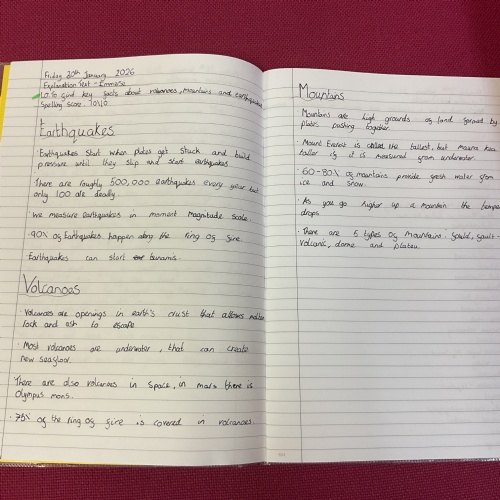 Friday 20th January 2026
Explanation Text - Immerse
L.O. To find key facts about volcanoes, mountains and earthquakes
Spelling score: 10/10
Earthquakes
· Earthquakes start when plates get stuck and build
pressure until they slip and start earthquakes.
There are roughly 500,000 earthquakes every year but
only 100 are deadly.
We measure earthquakes in moment magnitude scale.
· 90% of Earthquakes happen along the ring of fire.
· Earthquakes can start tsunamis.
Volcanoas
· Volcanoes are openings in earth's crust that allows molten
rock and ash to escape
· Most volcanoes are underwater, that can create
new seafloor.
There are also volcanoes in space, in mars there is
Olympus mons.
· 75% of the ring of fire is covered in volcanoes.
Mountains
· Mountains are high grounds of land formed by
plates pushing together.
· Mount Everest is called the tallest, but mauna kea
taller if it is measured from underwater.
· 60-80% of mountains provide fresh water from
ice and snow.
· As you go higher up a mountain the
drops.
· There are 5 types of mountains: fould, fault-
volcanic, dome and plateau.